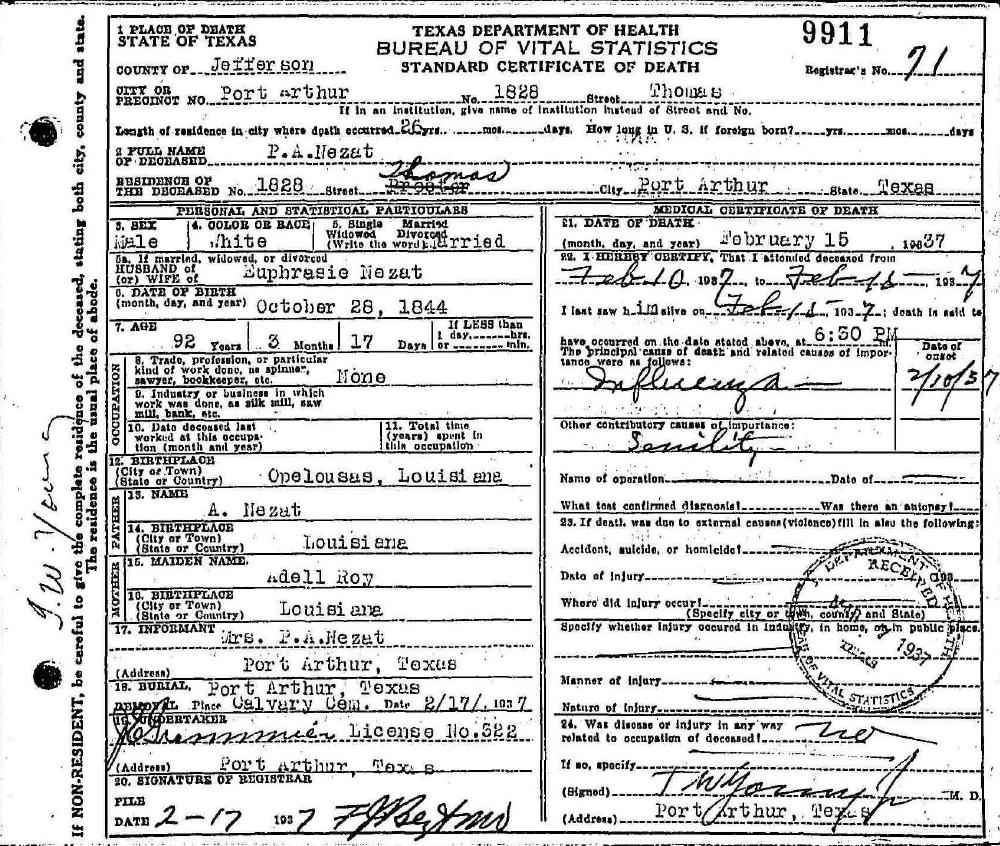 1 PLACE OF DEATH
STATE OF TEXAS
COUNTY OF Jefferson
TEXAS DEPARTMENT OF HEALTH
BUREAU OF VITAL STATISTICS
STANDARD CERTIFICATE OF DEATH
9911
Registrar's No. 71
CITY OR
PRECINCT NO. Port Arthur No. 1828 Street Thomas
If in an institution, give name of institution instead of Street and No.
Length of residence in city where death occurred 26 yrs. mos. days. How long in U. S. if foreign born? yrs. mos. days
2 FULL NAME
OF DECEASED P.A.Nezat
RESIDENCE OF
THE DECEASED No. 1828 Street Thomas City Port Arthur State Texas
PERSONAL AND STATISTICAL PARTICULARS
3. SEX
Male
4. COLOR OR RACE
White
5. Single Married
Widowed Divorced
(Write the word) Married
5a. If married, widowed, or divorced
HUSBAND of
(or) WIFE of Euphrasie Nezat
6. DATE OF BIRTH
(month, day, and year) October 28, 1844
7. AGE
92 Years 3 Months 17 Days
If LESS than
1 day hrs.
or min.
OCCUPATION
8. Trade, profession, or particular
kind of work done, as spinner,
sawyer, bookkeeper, etc. None
9. Industry or business in which
work was done, as silk mill, saw
mill, bank, etc.
10. Date deceased last
worked at this occupa-
tion (month and year)
11. Total time
(years) spent in
this occupation
12. BIRTHPLACE
(City or Town)
(State or Country) Opelousas, Louisiana
FATHER
13. NAME
A. Nezat
14. BIRTHPLACE
(City or Town)
(State or Country) Louisiana
MOTHER
15. MAIDEN NAME
Adell Roy
16. BIRTHPLACE
(City or Town)
(State or Country) Louisiana
17. INFORMANT
Mrs. P.A.Nezat
(Address) Port Arthur, Texas
18. BURIAL, Port Arthur, Texas
REMOVAL Place Calvary Cem. Date 2/17/ 1937
19. UNDERTAKER
License No.322
(Address) Port Arthur, Texas
20. SIGNATURE OF REGISTRAR
FILE
DATE 2-17 1937
MEDICAL CERTIFICATE OF DEATH
21. DATE OF DEATH
(month, day, and year) February 15 1937
22. I HEREBY CERTIFY, That I attended deceased from
Feb 10 1937, to Feb 15 1937
I last saw h im alive on Feb 15 1937; death is said to
have occurred on the date stated above, at 6:30 PM
The principal cause of death and related causes of impor-
tance were as follows:
Date of
onset
Influenza 2/10/37
Other contributory causes of importance:
Senility
Name of operation Date of
What test confirmed diagnosis? Was there an autopsy?
23. If death was due to external causes (violence) fill in also the following:
Accident, suicide, or homicide?
Date of injury 193
Where did injury occur?
(Specify city or town, county, and State)
Specify whether injury occured in industry, in home, or in public place.
Manner of injury
Nature of injury
24. Was disease or injury in any way
related to occupation of deceased? no
If so, specify
(Signed) T W Young M. D.
(Address) Port Arthur, Texas
DEPARTMENT OF HEALTH
RECEIVED
1937
BUREAU OF VITAL STATISTICS
If NON-RESIDENT, be careful to give the complete residence of the deceased, stating both city, county and state.
The residence is the usual place of abode.